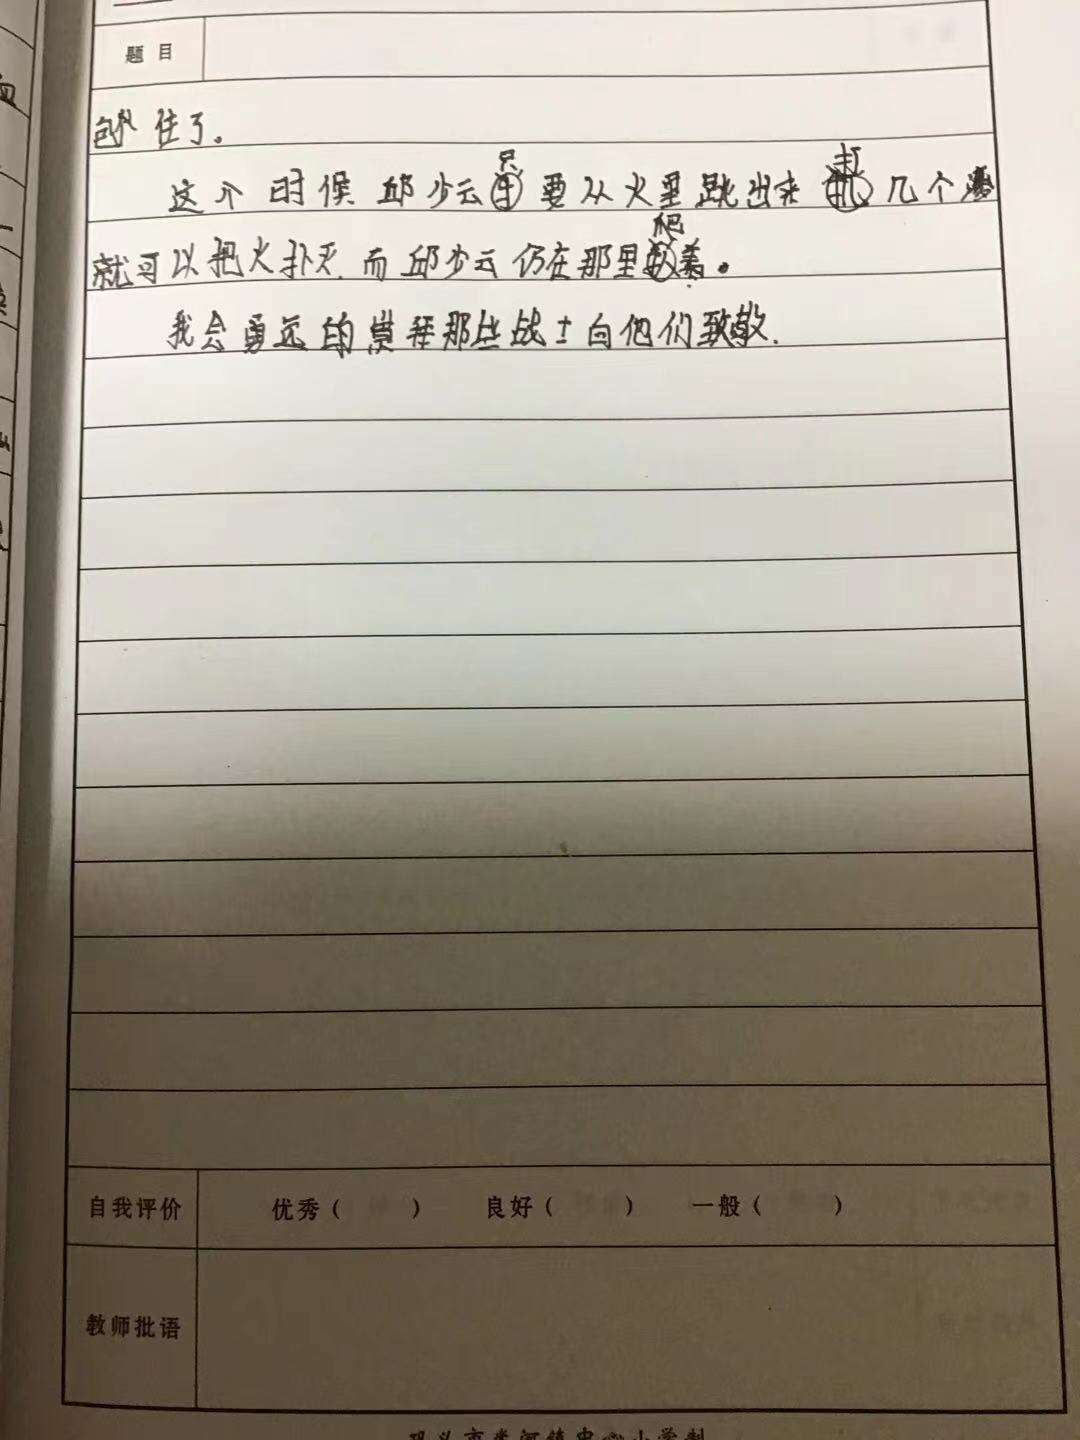 题目
住了。
这个时候邱少云只要从火里跳出来打几个滚
就可以把火扑灭.而邱少云仍在那里爬着。
我会勇远的赏拜那些战士向他们致敬.
自我评价 优秀( ) 良好( ) 一般( )
教师批语